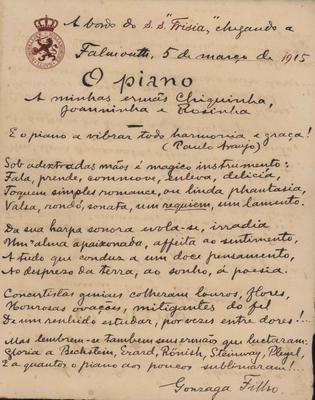 A bordo do s.s. "Frisia," chegando a
Falmouth, 5 de março de 1915
O piano
A minhas ermãs Chiquinha,
Joanninha e Rosinha
E o piano a vibrar todo harmonia e graça!
(Paulo Araujo)
Sob adextradas mãos é magico instrumento:
Fala, prende, commove, enleva, delicia,
Toquem simples romance, ou linda phantasia,
Valsa, rondó, sonata, um requiem, um lamento.
Da sua harpa sonora evola-se, irradia
Um'alma apaixonada, affeita ao sentimento,
A tudo que conduz a um doce pensamento,
Ao desprezo da terra, ao sonho, á poesia.
Concertistas geniais colheram louros, flores,
Honrosas ovações, mitigantes do fel
De um renhido estudar, por vezes entre dores!...
Mas lembrem-se tambem seus ermãos que luctaram:
Gloria a Bechstein, Erard, Rönish, Steinway, Pleyel,
E a quantos o piano aos poucos sublimaram!...
Gonzaga Filho